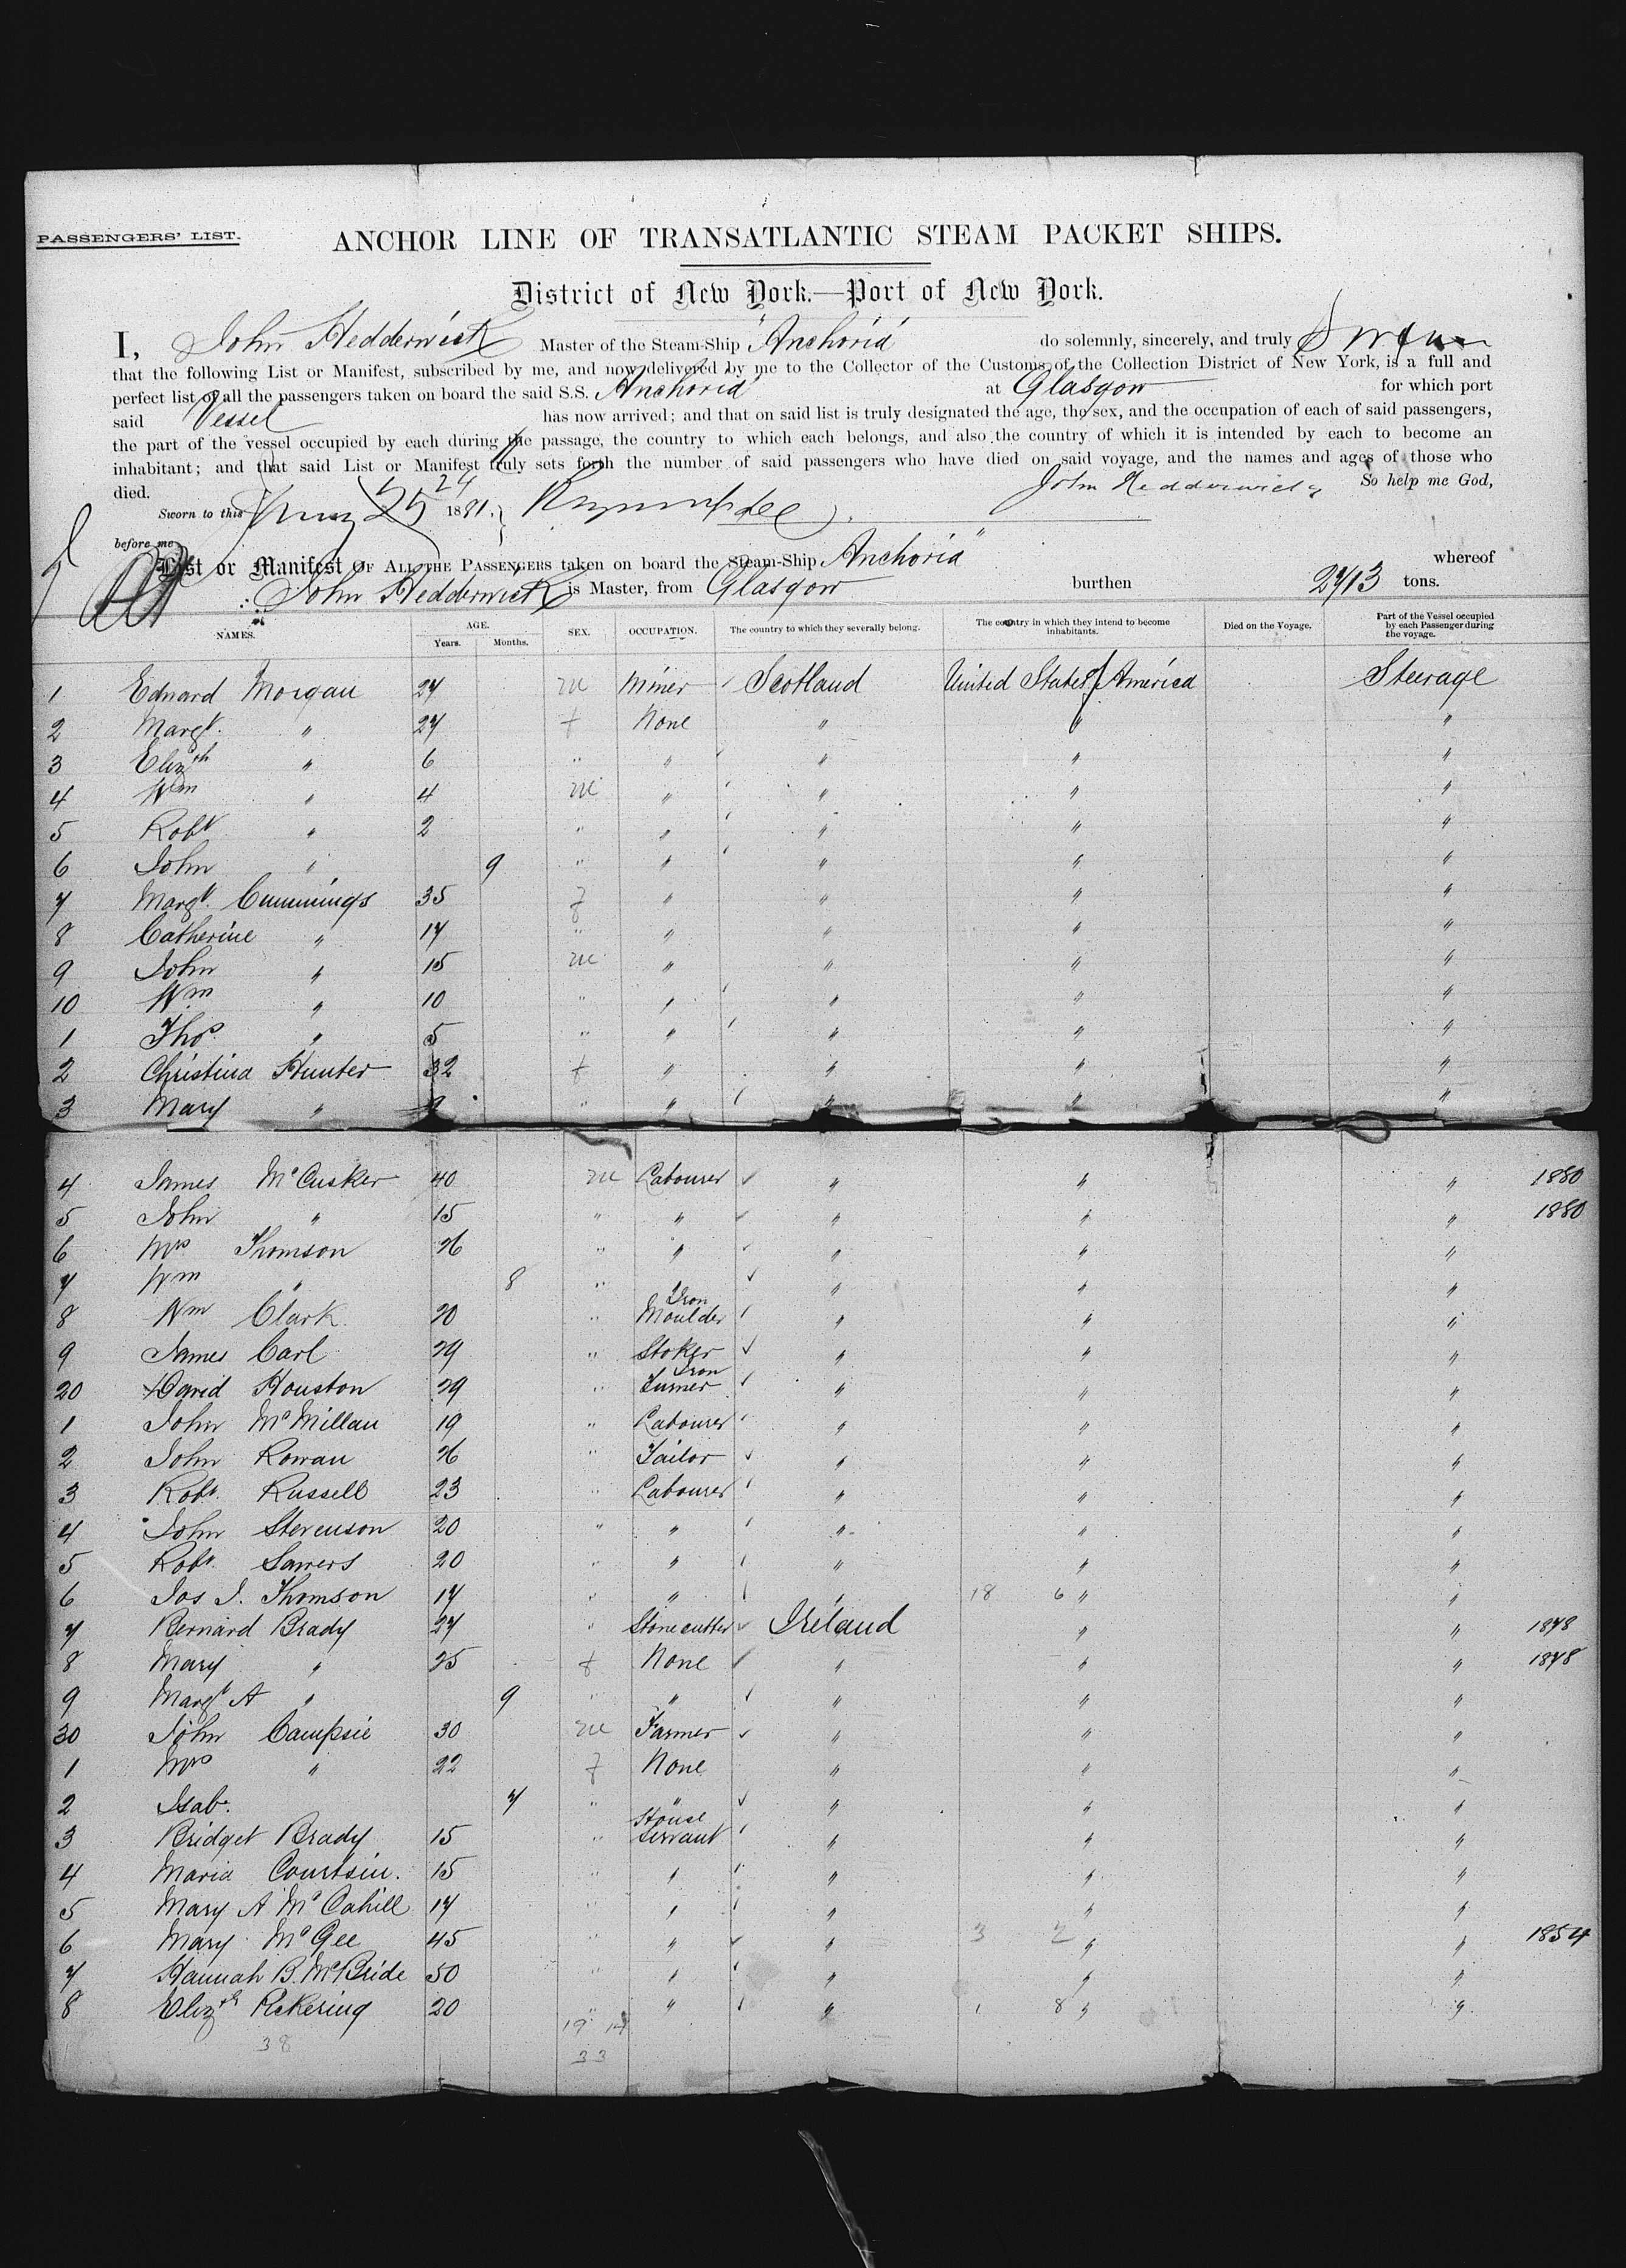 PASSENGERS' LIST.
ANCHOR LINE OF TRANSATLANTIC STEAM PACKET SHIPS.
District of New York.—Port of New York.
I, John Hedderwick Master of the Steam-Ship "Anchoria" do solemnly, sincerely, and truly Swear
that the following List or Manifest, subscribed by me, and now delivered by me to the Collector of the Customs of the Collection District of New York, is a full and
perfect list of all the passengers taken on board the said S.S. Anchoria at Glasgow for which port
said Vessel has now arrived; and that on said list is truly designated the age, the sex, and the occupation of each of said passengers,
the part of the vessel occupied by each during the passage, the country to which each belongs, and also the country of which it is intended by each to become an
inhabitant; and that said List or Manifest truly sets forth the number of said passengers who have died on said voyage, and the names and ages of those who
died. John Hedderwick So help me God,
Sworn to this 25 24 1881.
before me
List or Manifest OF ALL THE PASSENGERS taken on board the Steam-Ship Anchoria" whereof
John Hedderwick is Master, from Glasgow burthen 2713 tons.
NAMES. AGE. Years. Months. SEX. OCCUPATION. The country to which they severally belong. The country in which they intend to become inhabitants. Died on the Voyage. Part of the Vessel occupied by each Passenger during the voyage.
1 Edward Morgan 27 m Miner Scotland United States of America Steerage
2 Margt. " 27 f None " " "
3 Elizth " 6 " " " " "
4 Wm " 4 m " " " "
5 Robt " 2 " " " " "
6 John " 9 " " " " "
7 Margt. Cummings 35 f " " " "
8 Catherine " 17 " " " " "
9 John " 15 m " " " "
10 Wm " 10 " " " " "
1 Thos " 5 " " " " "
2 Christina Hunter 32 f " " " "
3 Mary " 9 " " " " "
4 James McCusker 40 m Labourer " " " 1880
5 John " 15 " " " " " 1880
6 Mrs Thomson 26 " " " " "
7 Wm " 8 " " " "
8 Wm Clark 20 " Iron Moulder " " "
9 James Carl 29 " Stoker " " "
20 David Houston 29 " Iron Turner " " "
1 John McMillan 19 " Labourer " " "
2 John Rowan 26 " Tailor " " "
3 Robt. Russell 23 " Labourer " " "
4 John Stevenson 20 " " " " "
5 Robt. Sawers 20 " " " " "
6 Jos J. Thomson 17 " " " 18 6 " "
7 Bernard Brady 27 " Stonecutter Ireland " " 1878
8 Mary " 25 f None " " " 1878
9 Margt A " 9 " " " " "
30 John Campsie 30 m Farmer " " "
1 Mrs " 22 f None " " "
2 Isab. 7 " " " " "
3 Bridget Brady 15 " House Servant " " "
4 Maria Courtsin. 15 " " " " "
5 Mary A McCahill 17 " " " " "
6 Mary McGee 45 " " " 3 2 " " 1854
7 Hannah B. McBride 50 " " " " "
8 Elizth Pickering 20 " " " 1 8 " "
38 19 14
33